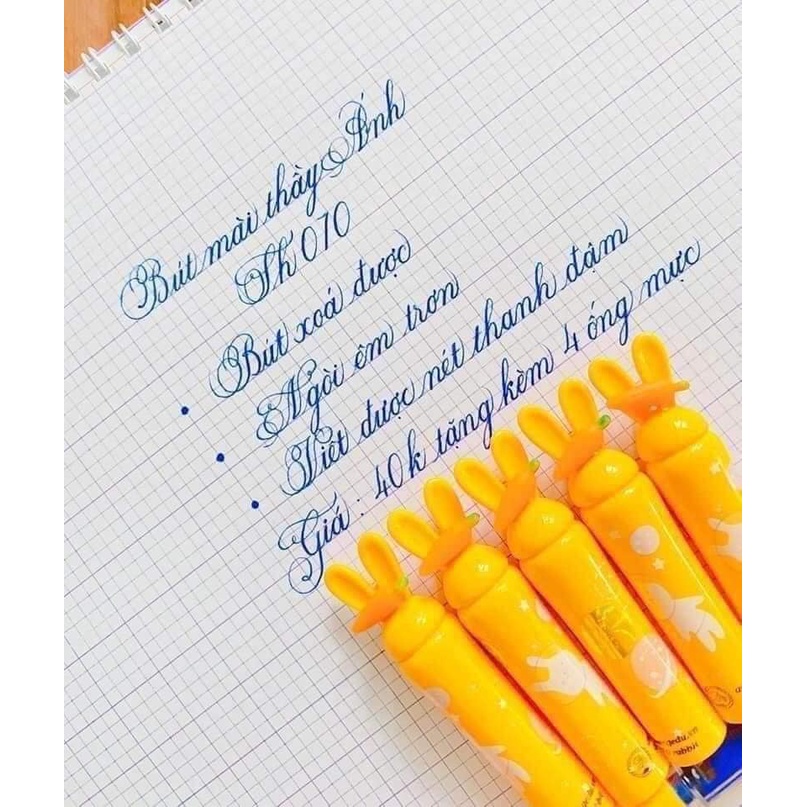 Bút mài thầy Ánh
Sh 070
Bút xoá được
Ngòi êm trơn
Viết được nét thanh đậm
Giá : 40k tặng kèm 4 ống mực